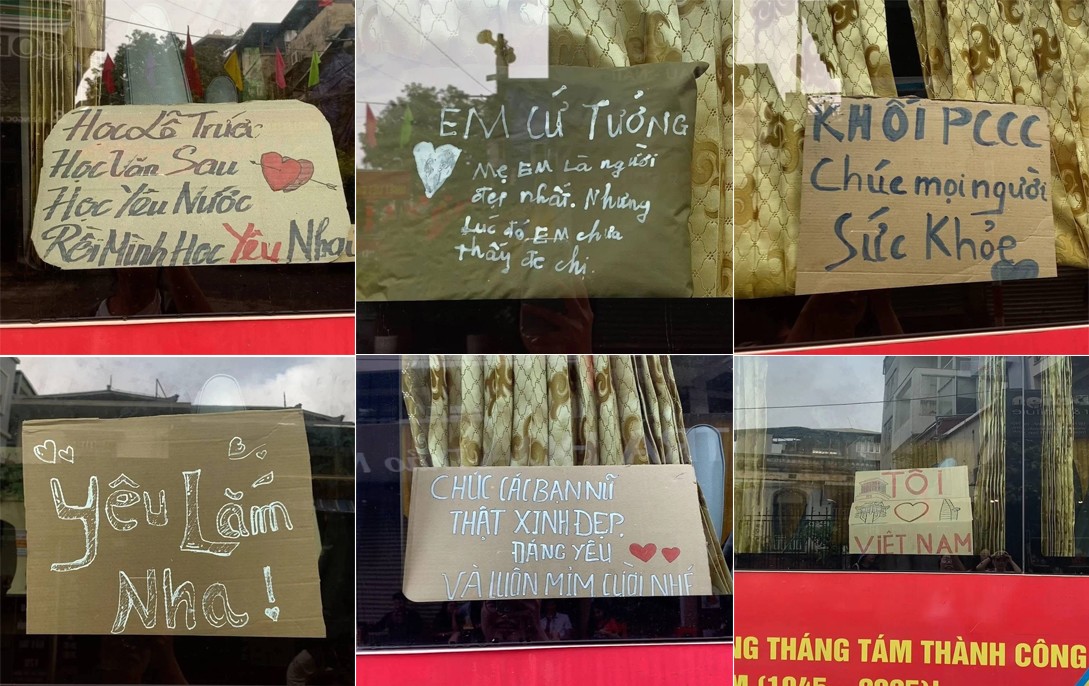 Học Lô Trước
Học Văn Sau
Học Yêu Nước
Rồi Mình Học Yêu Nhau
EM CỨ TƯỞNG
Mẹ EM Là người
đẹp nhất. Nhưng
Lúc đó EM chưa
thấy đc chị.
KHỐI PCCC
Chúc mọi người
Sức Khỏe
Yêu Lắm
Nha!
CHÚC CÁC BẠN NỮ
THẬT XINH ĐẸP,
ĐÁNG YÊU
VÀ LUÔN MỈM CƯỜI NHÉ
TÔI
VIỆT NAM
NG THÁNG TÁM THÀNH CÔNG